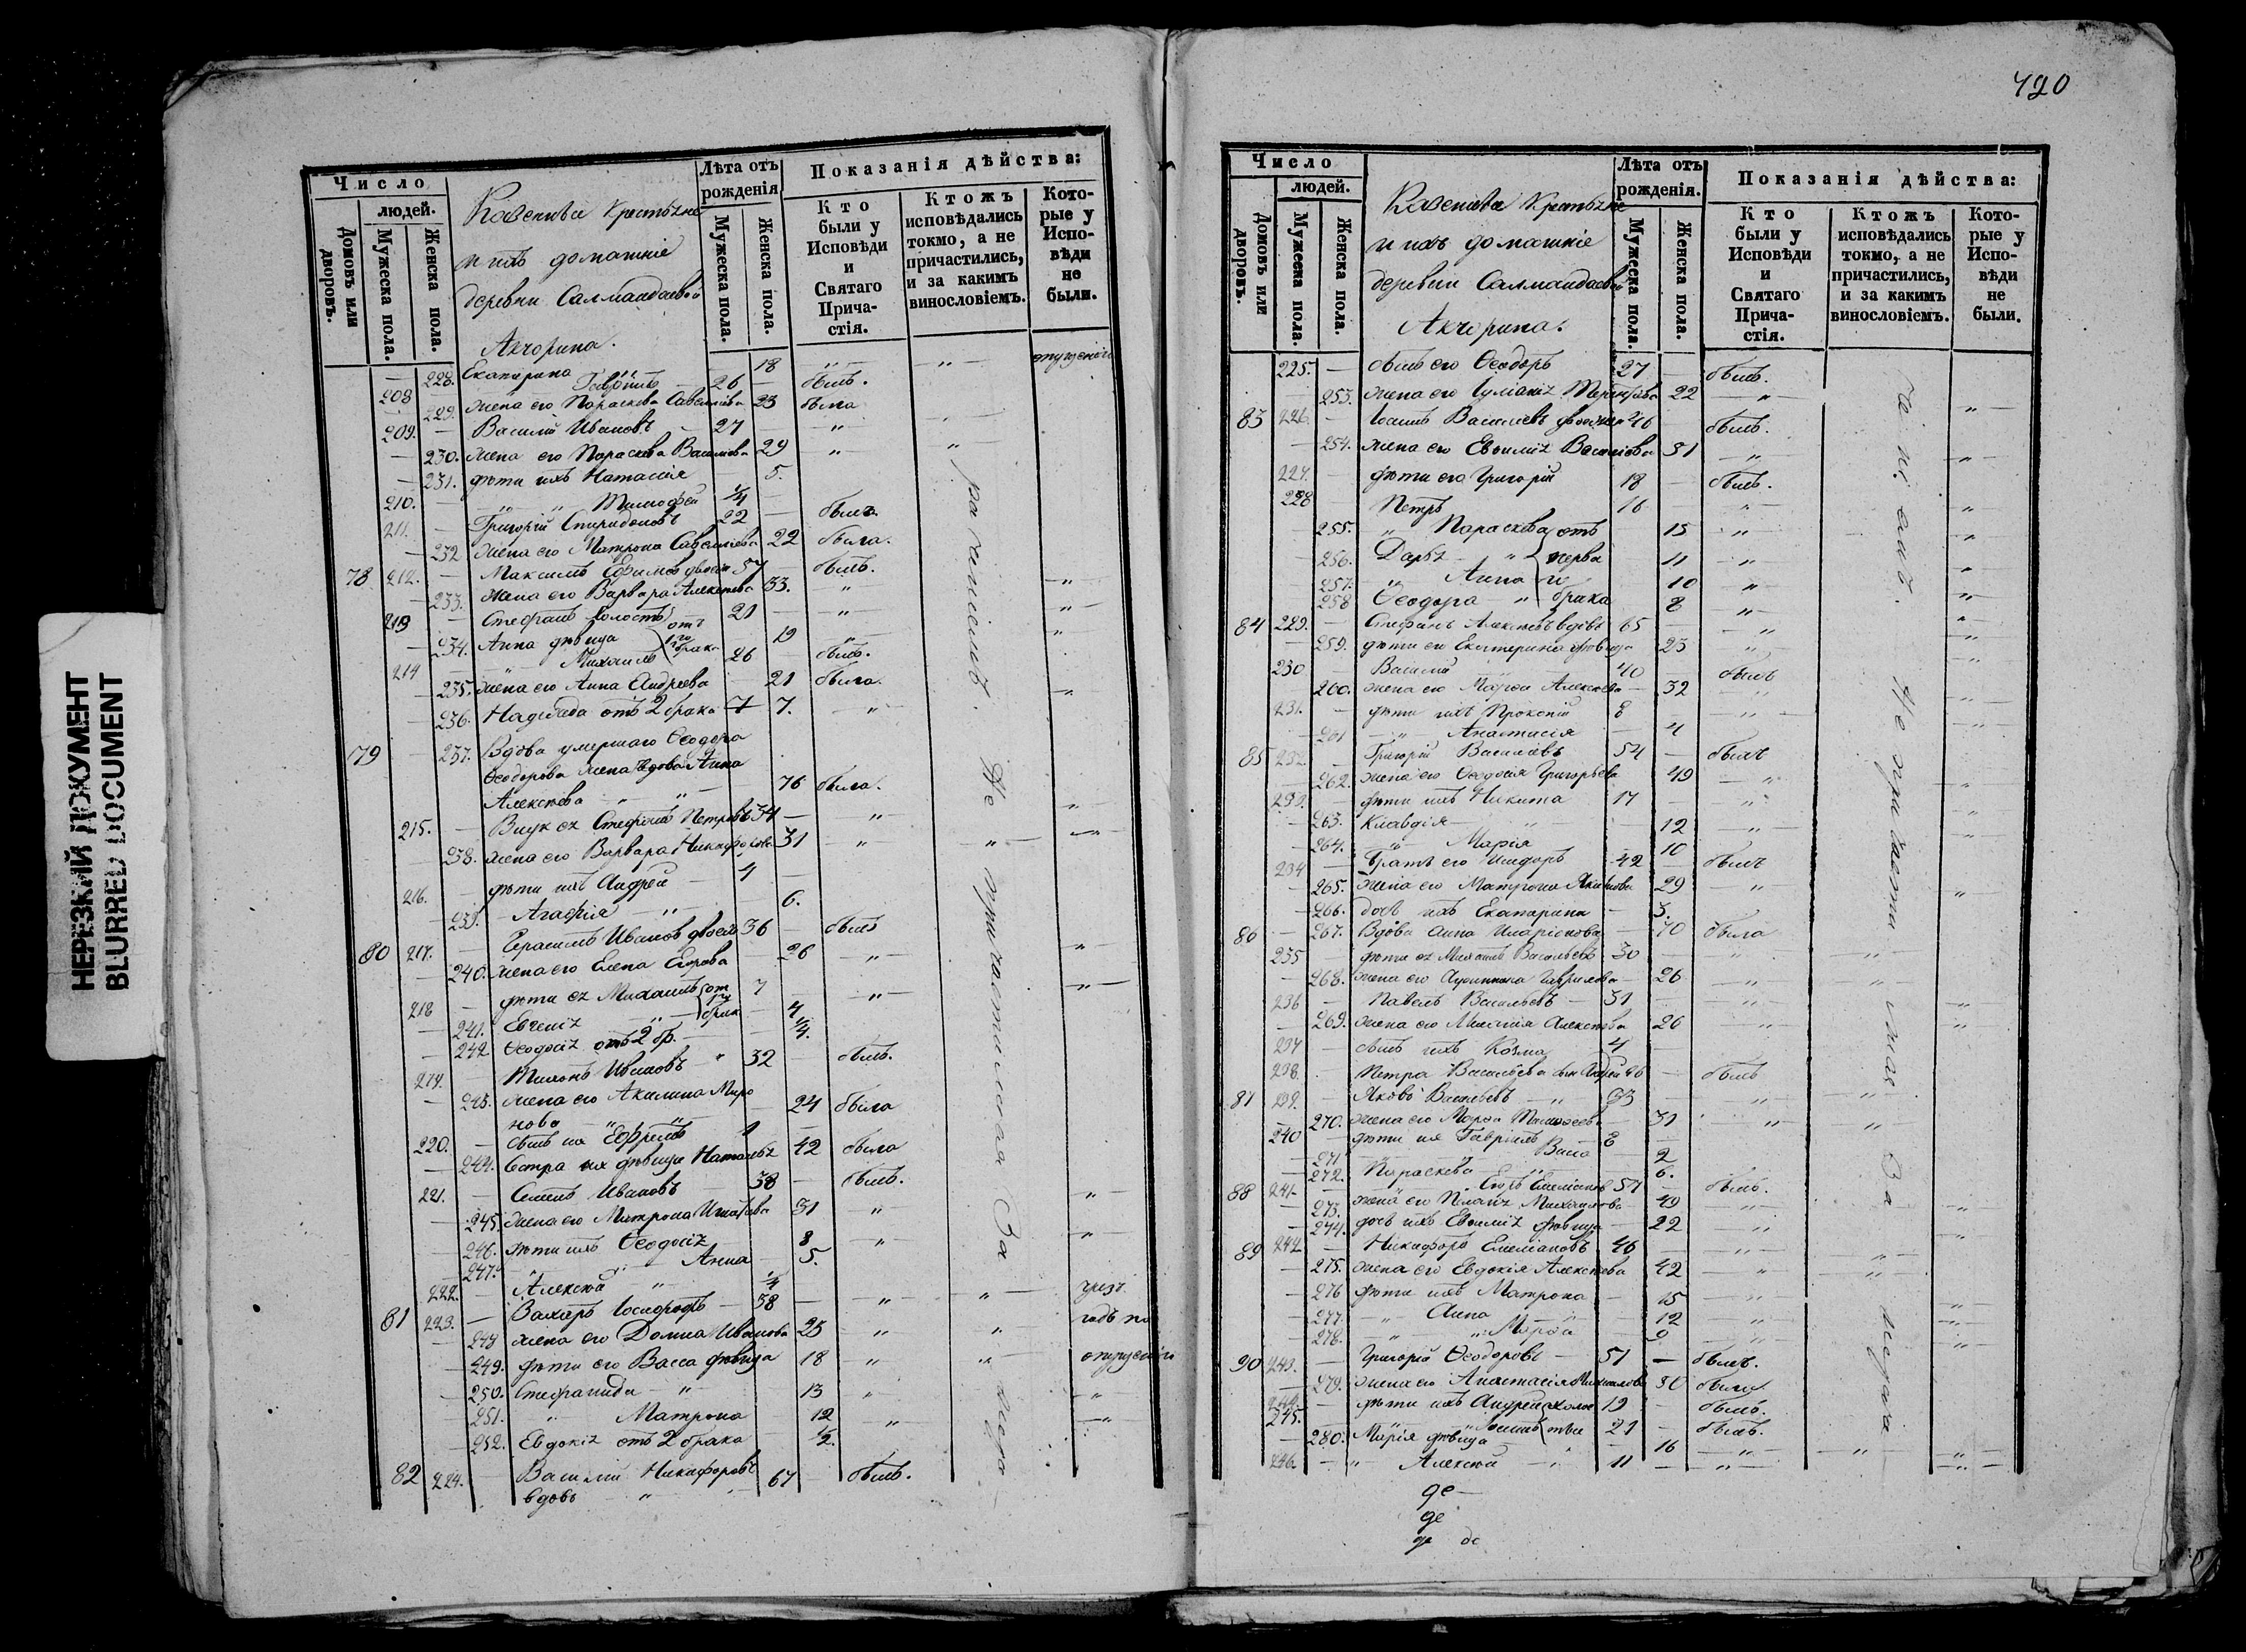 НЕРЕЗКИЙ ДОКУМЕНТ
BLURRED DOCUMENT
Число
людей.
Домовъ или дворовъ.
Мужеска пола.
Женска пола.
Казенныя Крестьяне
и ихъ домашніе
деревни Салмандаевой
Акчорина.
Лѣта отъ рожденія
Мужеска пола.
Женска пола.
Показанія дѣйства:
Кто были у Исповѣди и Святаго Причастія.
Ктожъ исповѣдались токмо, а не причастились, и за какимъ винословіемъ.
Которые у Исповѣди не были.
228. Екатерина 18 опущенію
208 Гавріилъ 26 былъ.
229. жена его Параскева Савельева 23 была
209. Василій Ивановъ 27 "
230. жена его Параскева Васильева 29 "
231. дѣти ихъ Наталія 5.
210. " Тимофей 1/4
211. Григорій Спиридоновъ 22 былъ.
232 жена его Матрона Савельева 22 была.
78 212. Максимъ Ефимовъ двоеж 57 былъ.
233. жена его Варвара Алексѣева 33. "
213 Стефанъ холостъ 21 "
234. Анна дѣвица отъ 1го брака 19 "
214 Михаилъ 26 былъ.
235. жена его Анна Андреева 21 была.
236. Надежда отъ 2 брака 7. "
79 237. Вдова умершаго Ѳеодора
Ѳеодорова жена вдова Анна
Алексѣева 76 была.
215. Внук ея Стефанъ Петровъ 34 "
238. жена его Варвара Никифорова 31 "
216. дѣти ихъ Андрей 4
239. Агафія " 6.
80 217. Герасимъ Ивановъ двоеж 36 былъ
240. жена его Елена Егорова 26 "
218 дѣти ея Михаилъ от 1го брак 7 "
241. Евгенія " 4
242 Ѳеодосія отъ 2 бр. 1/4.
219. Тихонъ Ивановъ " 32 былъ.
243. жена его Акилина Миро
нова " " 24 была
220. сынъ их Ефремъ 1
244. Сестра их дѣвица Наталья 42 была
221. Семенъ Ивановъ 38 былъ.
245. жена его Матрона Игнатьева 31 "
246. дѣти ихъ Ѳеодосія 8 "
247. " Анна 5.
222. Алексѣй " 1/4
81 223. Захаръ Іосифовъ 38 " " чрезъ
248 жена его Домна Иванова 25 " " годъ по
249. дѣти его Васса дѣвица 18 " " опущенію
250. Степанида " 13 "
251. " Матрона 12 "
252. Евдокія отъ 2 брака 1/2.
82 224. Василій Никифоровъ
вдовъ " 67 былъ.
Не причастились За недо
рачѣніемъ.
420
Число
людей.
Домовъ или дворовъ.
Мужеска пола.
Женска пола.
Казенныя Крестьяне
и ихъ домашніе
деревни Салмандаевой
Акчорина.
Лѣта отъ рожденія.
Мужеска пола.
Женска пола.
Показанія дѣйства:
Кто были у Исповѣди и Святаго Причастія.
Ктожъ исповѣдались токмо, а не причастились, и за какимъ винословіемъ.
Которые у Исповѣди не были.
225. сынъ его Ѳеодоръ 27 былъ.
253. жена его Іуліанія 22 "
83 226. Іоаннъ Васильевъ двоеж 46 былъ.
254. жена его Евѳимія Васильева 31 "
227. дѣти его Григорій 18 былъ.
228 Петръ 16 "
255. " Параскева отъ 15 "
256. Дарья " перва 11 "
257. " Анна го 10 "
258 Ѳеодора " брака 8 "
84 229. Стефанъ Алексѣевъ вдовъ 65 "
259. дѣти его Екатерина дѣвица 23 "
230 Василій 40 былъ
260. жена его Марѳа Алексѣева 32 "
231. дѣти ихъ Прокопій 8 "
261 " Анастасія 4
85 232. Григорій Васильевъ 54 былъ
262. жена его Ѳеодосія Григорьева 49 "
233. дѣти ихъ Никита 17 "
263. Клавдія 12 "
264. " Марія 10
234 Братъ его Исидоръ 42 былъ
265. жена его Матрона 29 "
266. дочь ихъ Екатерина 3.
86 267. Вдова Анна Иларіонова 70 была
235 дѣти ея Михаилъ Васильевъ 30 " "
268. жена его Гаврилова 26 " "
236 Павелъ Васильевъ 31 "
269. жена его Алексѣева 26 "
237 сынъ ихъ Козма 4
238. Петра Васильева сын Андрей 26 былъ
87 239. Яковъ Васильевъ " 33 " "
270. жена его Марѳа Тимоѳеева 31 " "
240 дѣти их Гавріилъ 8
271 " Васса 2
272. Параскева 6.
88 241. Егоръ Емеліановъ 51 былъ.
273. жена его Пелагія Михаилова 49 "
274. дочь ихъ Евѳимія дѣвица 22 "
89 242 Никифоръ Емеліановъ 46 " "
275. жена его Евдокія Алексѣева 42 " "
276 дѣти ихъ Матрона 15 "
277. " Анна 12 "
278. " Марѳа 9 "
90 243. Григорій Ѳеодоровъ 51 былъ.
279. жена его Анастасія Михаилова 50 была.
244. дѣти ихъ Андрей холос 19 былъ.
245. " Іоаннъ 21 былъ.
280. Марія дѣвица 16 " "
246. " Алексѣй " 11 "
Не причасти лись За недора
чѣніемъ.
де
де
де де